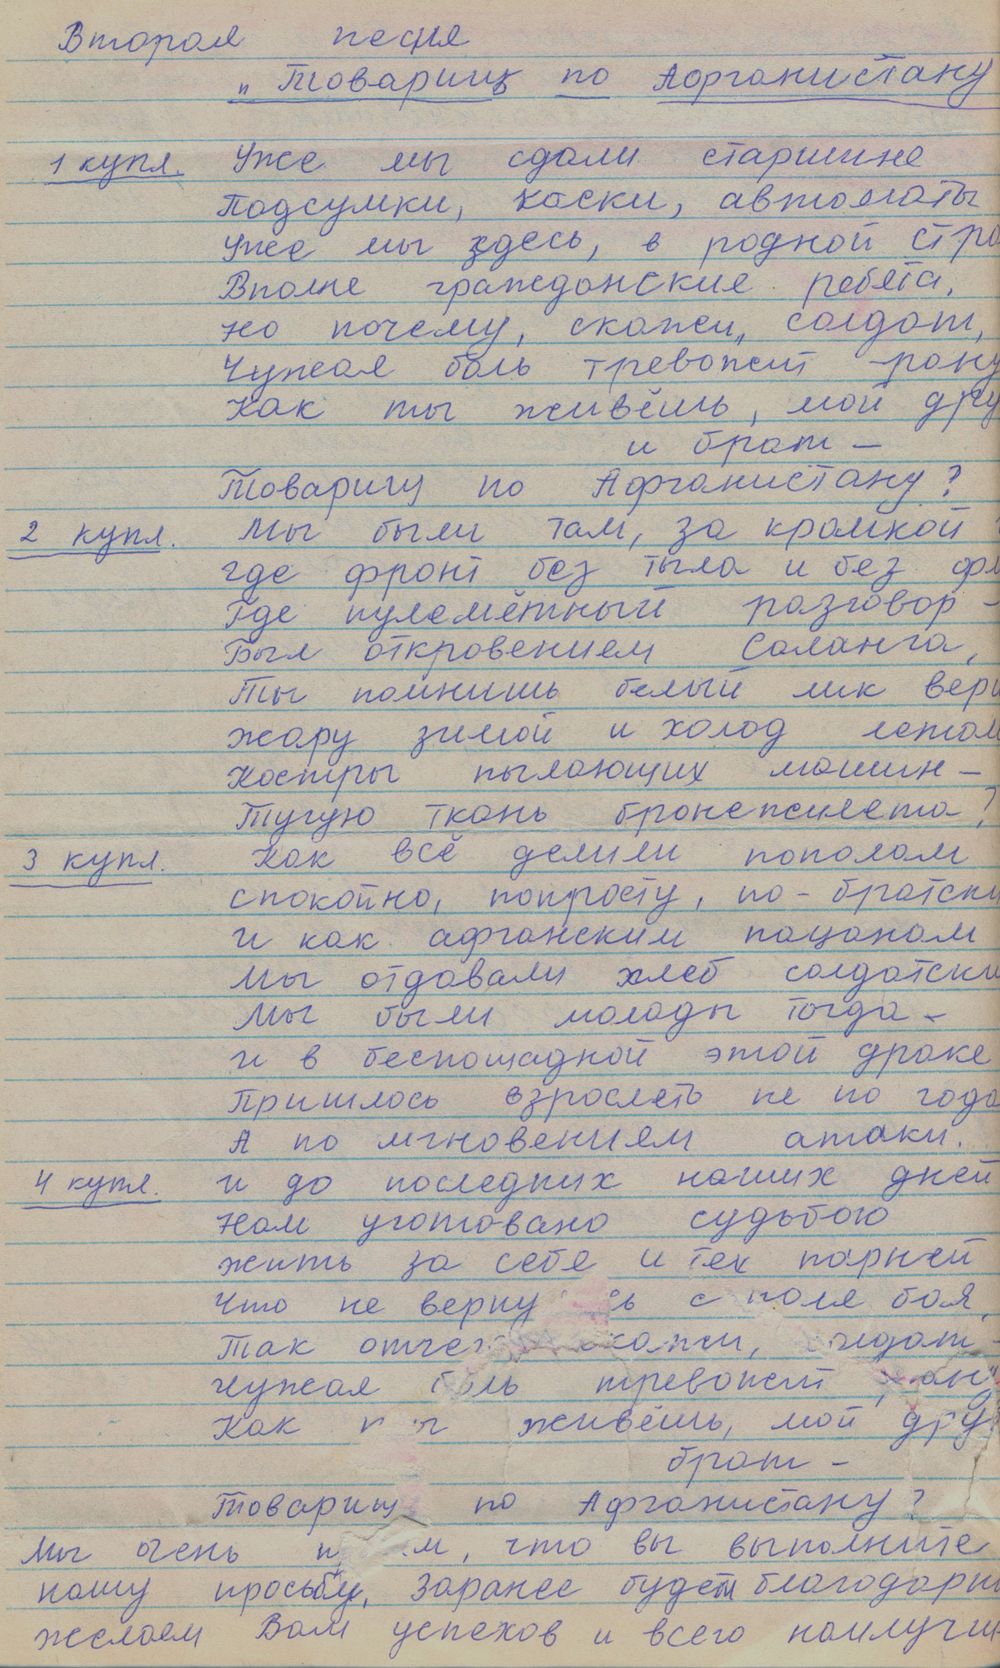 Вторая песня
„Товарищ по Афганистану
1 купл. Уже мы сдали старшине
Подсумки, каски, автоматы
Уже мы здесь, в родной стра
Вполне гражданские ребята,
Но почему, скажи, солдат,
Чужая боль тревожит рану
Как ты живёшь, мой дру
и брат –
Товарищ по Афганистану?
2 купл. Мы были там, за кромкой
где фронт без тыла и без фл
Где пулемётный разговор –
Был откровением Саланга,
Ты помнишь белый лик верш
жару зимой и холод летом
Костры пылающих машин –
Тугую ткань бронежилета?
3 купл. Как всё делили пополам
спокойно, попросту, по-братски
И как афганским пацанам
Мы отдавали хлеб солдатски
Мы были молоды тогда –
и в беспощадной этой драке
Пришлось взрослеть не по года
А по мгновениям атаки.
4 купл. И до последних наших дней
Нам уготовано судьбою
жить за себя и тех парней
Что не верну сь с поля боя,
Так отчег скажи, солдат –
Чужая боль тревожит ран
Как ты живёшь, мой дру
брат –
Товарищ по Афганистану?
Мы очень м, что вы выполните
нашу просьбу. Заранее будем благодарн
желаем Вам успехов и всего наилучш